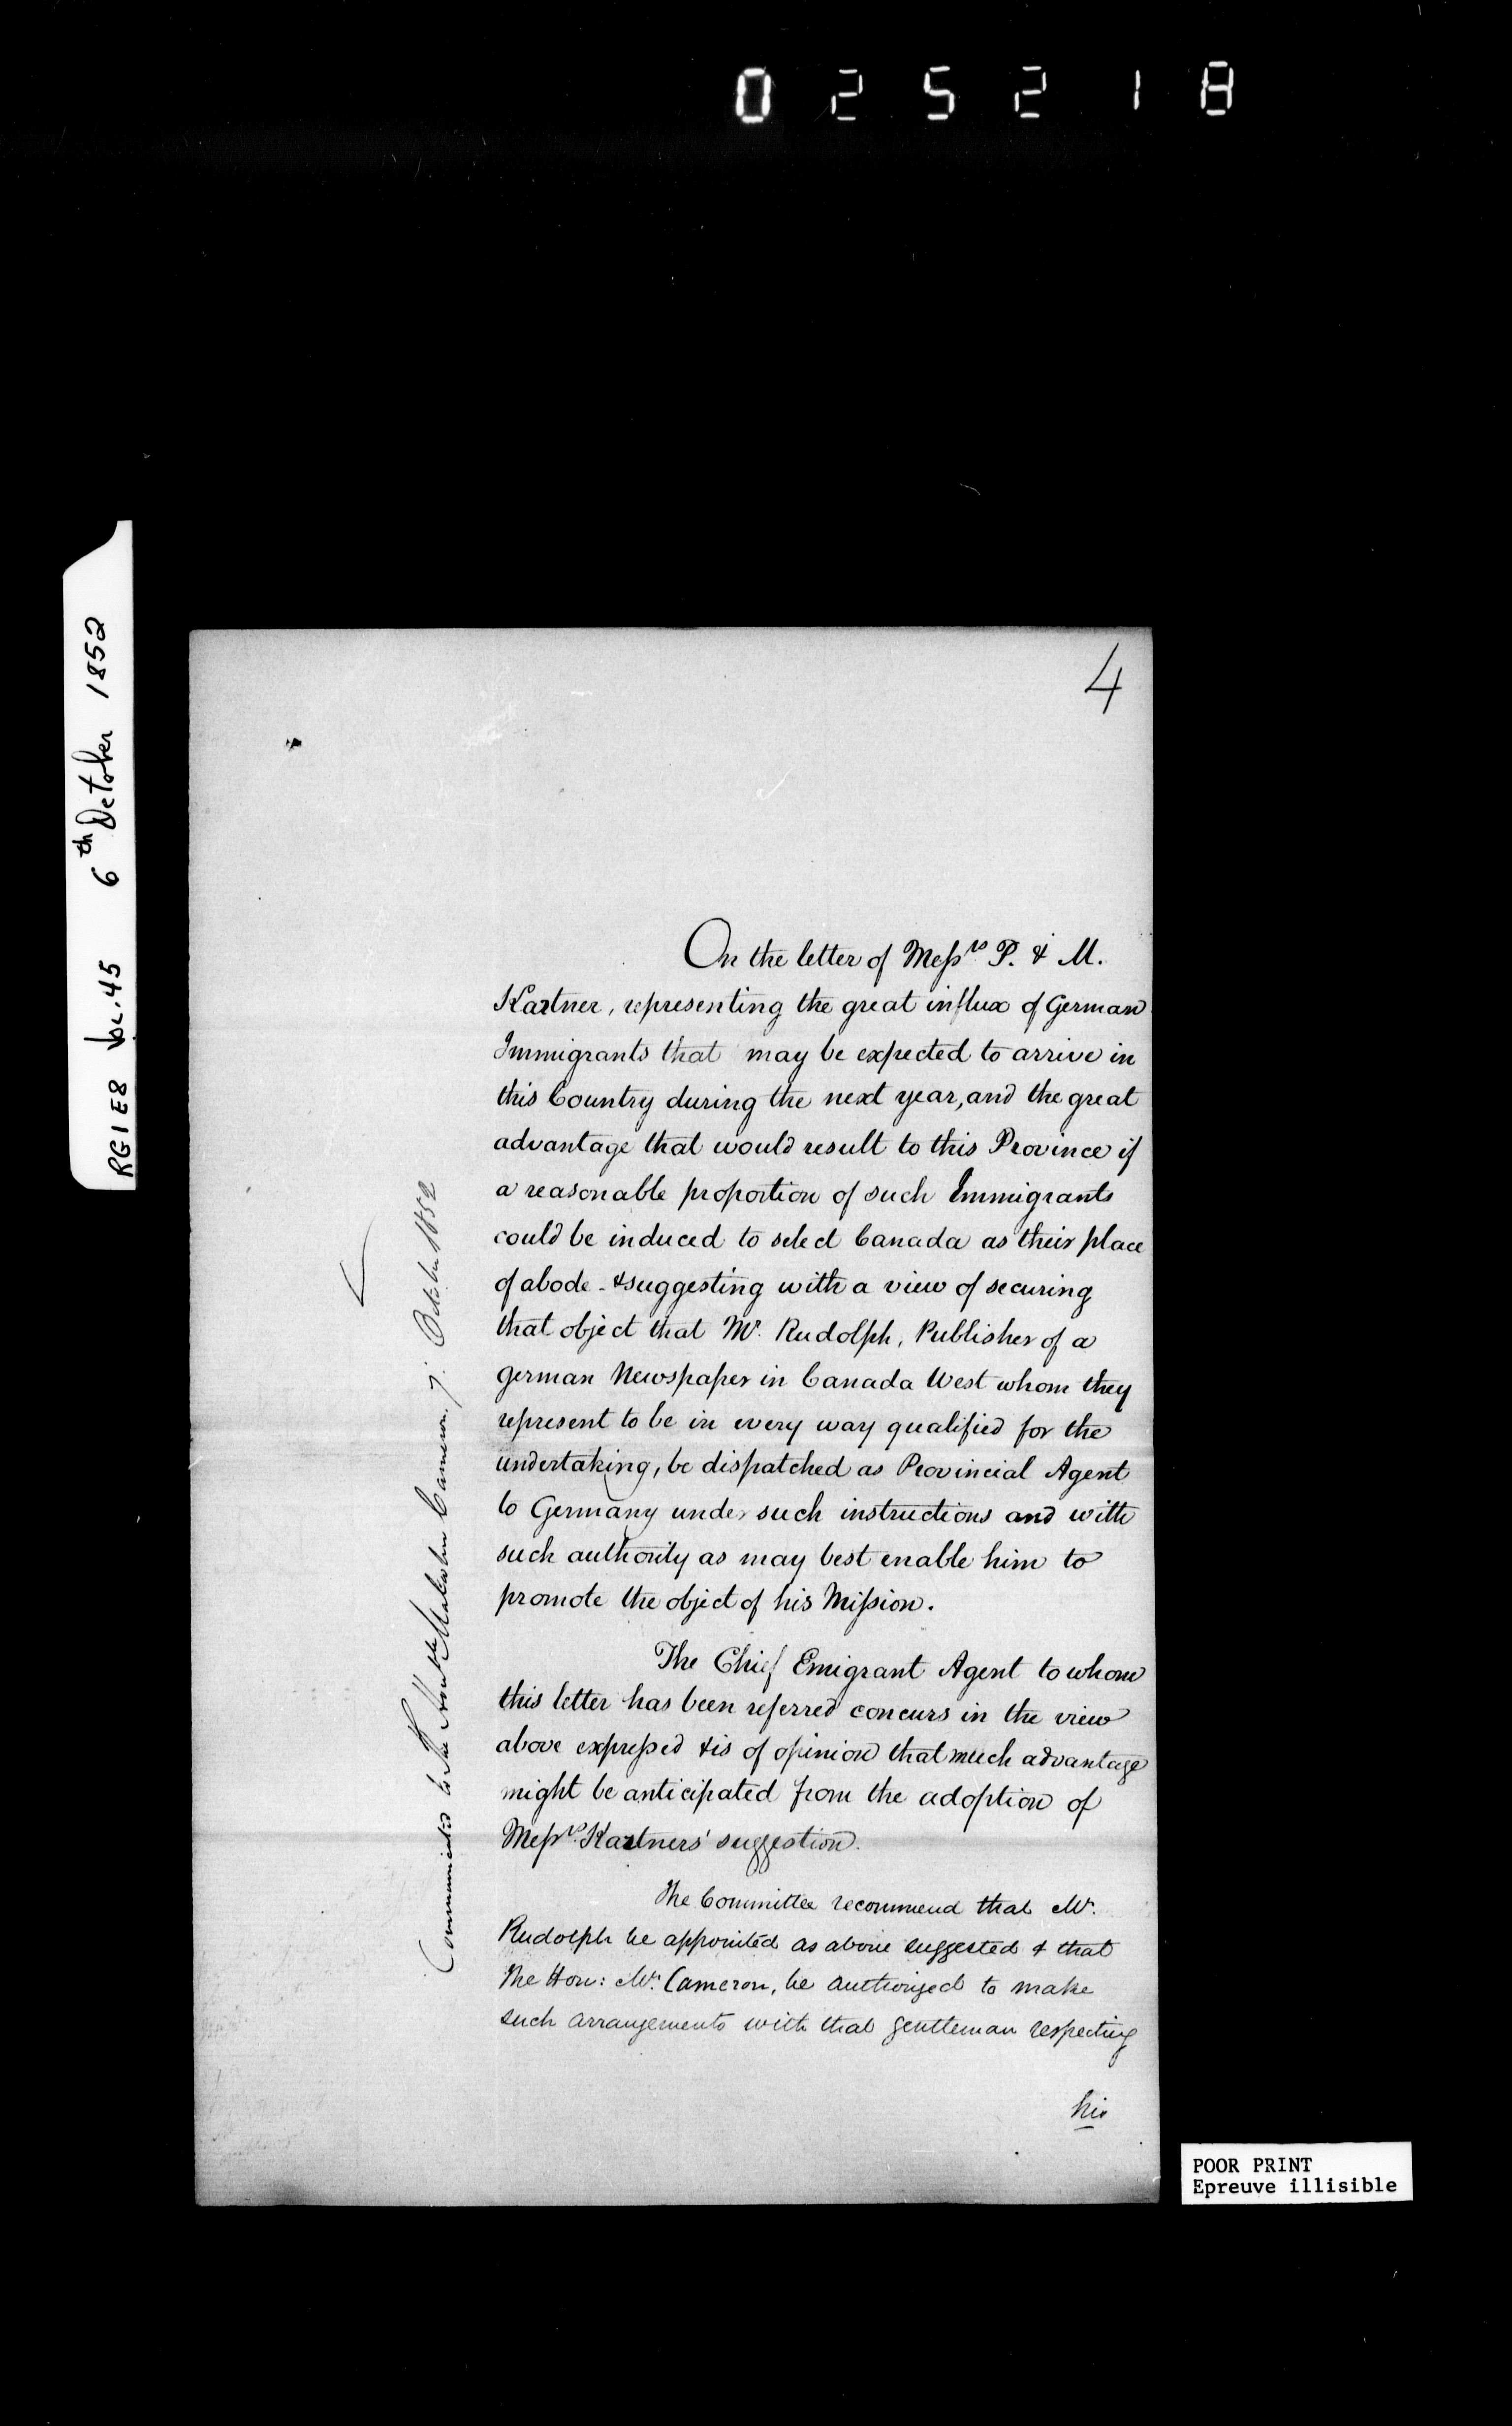 0 2 5 2 1 8
RG 1 E8 Vol. 45 6th October 1852
4
On the letter of Messrs P. & M.
Kastner, representing the great influx of German
Immigrants that may be expected to arrive in
this Country during the next year, and the great
advantage that would result to this Province if
a reasonable proportion of such Immigrants
could be induced to select Canada as their place
of abode - & suggesting with a view of securing
that object that Mr. Rudolph, Publisher of a
German Newspaper in Canada West whom they
represent to be in every way qualified for the
undertaking, be dispatched as Provincial Agent
to Germany under such instructions and with
such authority as may best enable him to
promote the object of his Mission.
The Chief Emigrant Agent to whom
this letter has been referred concurs in the view
above expressed & is of opinion that much advantage
might be anticipated from the adoption of
Messrs. Kastners' suggestion.
The Committee recommend that Mr.
Rudolph be appointed as above suggested & that
the Hon: Mr. Cameron, be authorized to make
such arrangements with that gentleman respecting
his
Communicated to the Honble Malcolm Cameron, 7. October 1852
POOR PRINT
Epreuve illisible